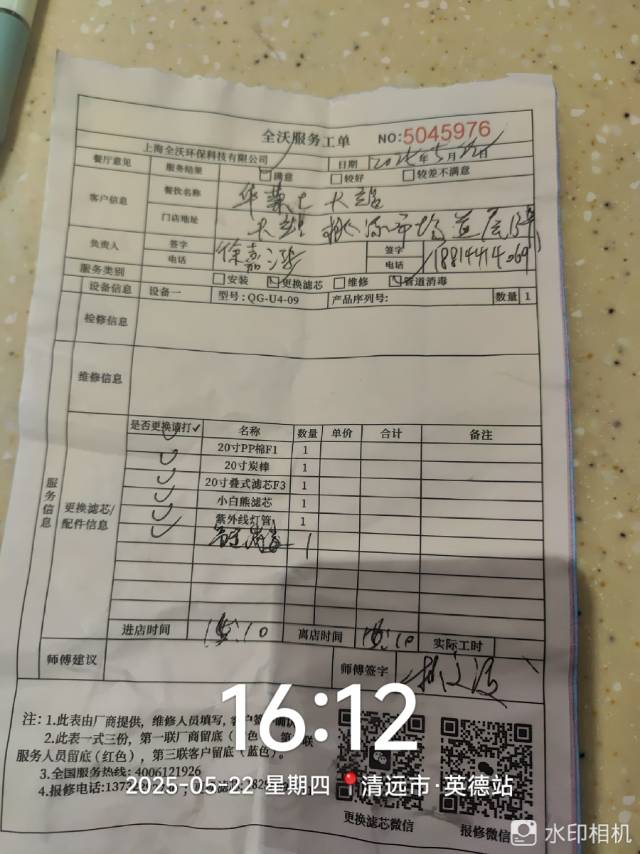 全沃服务工单
NO:5045976
上海全沃环保科技有限公司
日期 2025年5月22日
餐厅意见 服务结果 满意 较好 较差不满意
客户信息 餐饮名称
门店地址
负责人 签字 徐嘉 签字
电话 电话 18814414069
服务类别 安装 更换滤芯 维修 管道消毒
设备信息 设备一 型号:QG-U4-09 产品序列号: 数量 1
检修信息
维修信息
服务信息
更换滤芯/配件信息
是否更换请打✓ 名称 数量 单价 合计 备注
20寸PP棉F1 1
20寸炭棒 1
20寸叠式滤芯F3 1
小白熊滤芯 1
紫外线灯管 1
1
进店时间 离店时间 实际工时
师傅建议 师傅签字
16:12
注:1.此表由厂商提供,维修人员填写,客户签
2.此表一式三份,第一联厂商留底
服务人员留底(红色),第三联客户留底(蓝色)。
3.全国服务热线:4006121926
4.报修电话:137
2025-05-22 星期四 清远市·英德站
更换滤芯微信
报修微信
水印相机